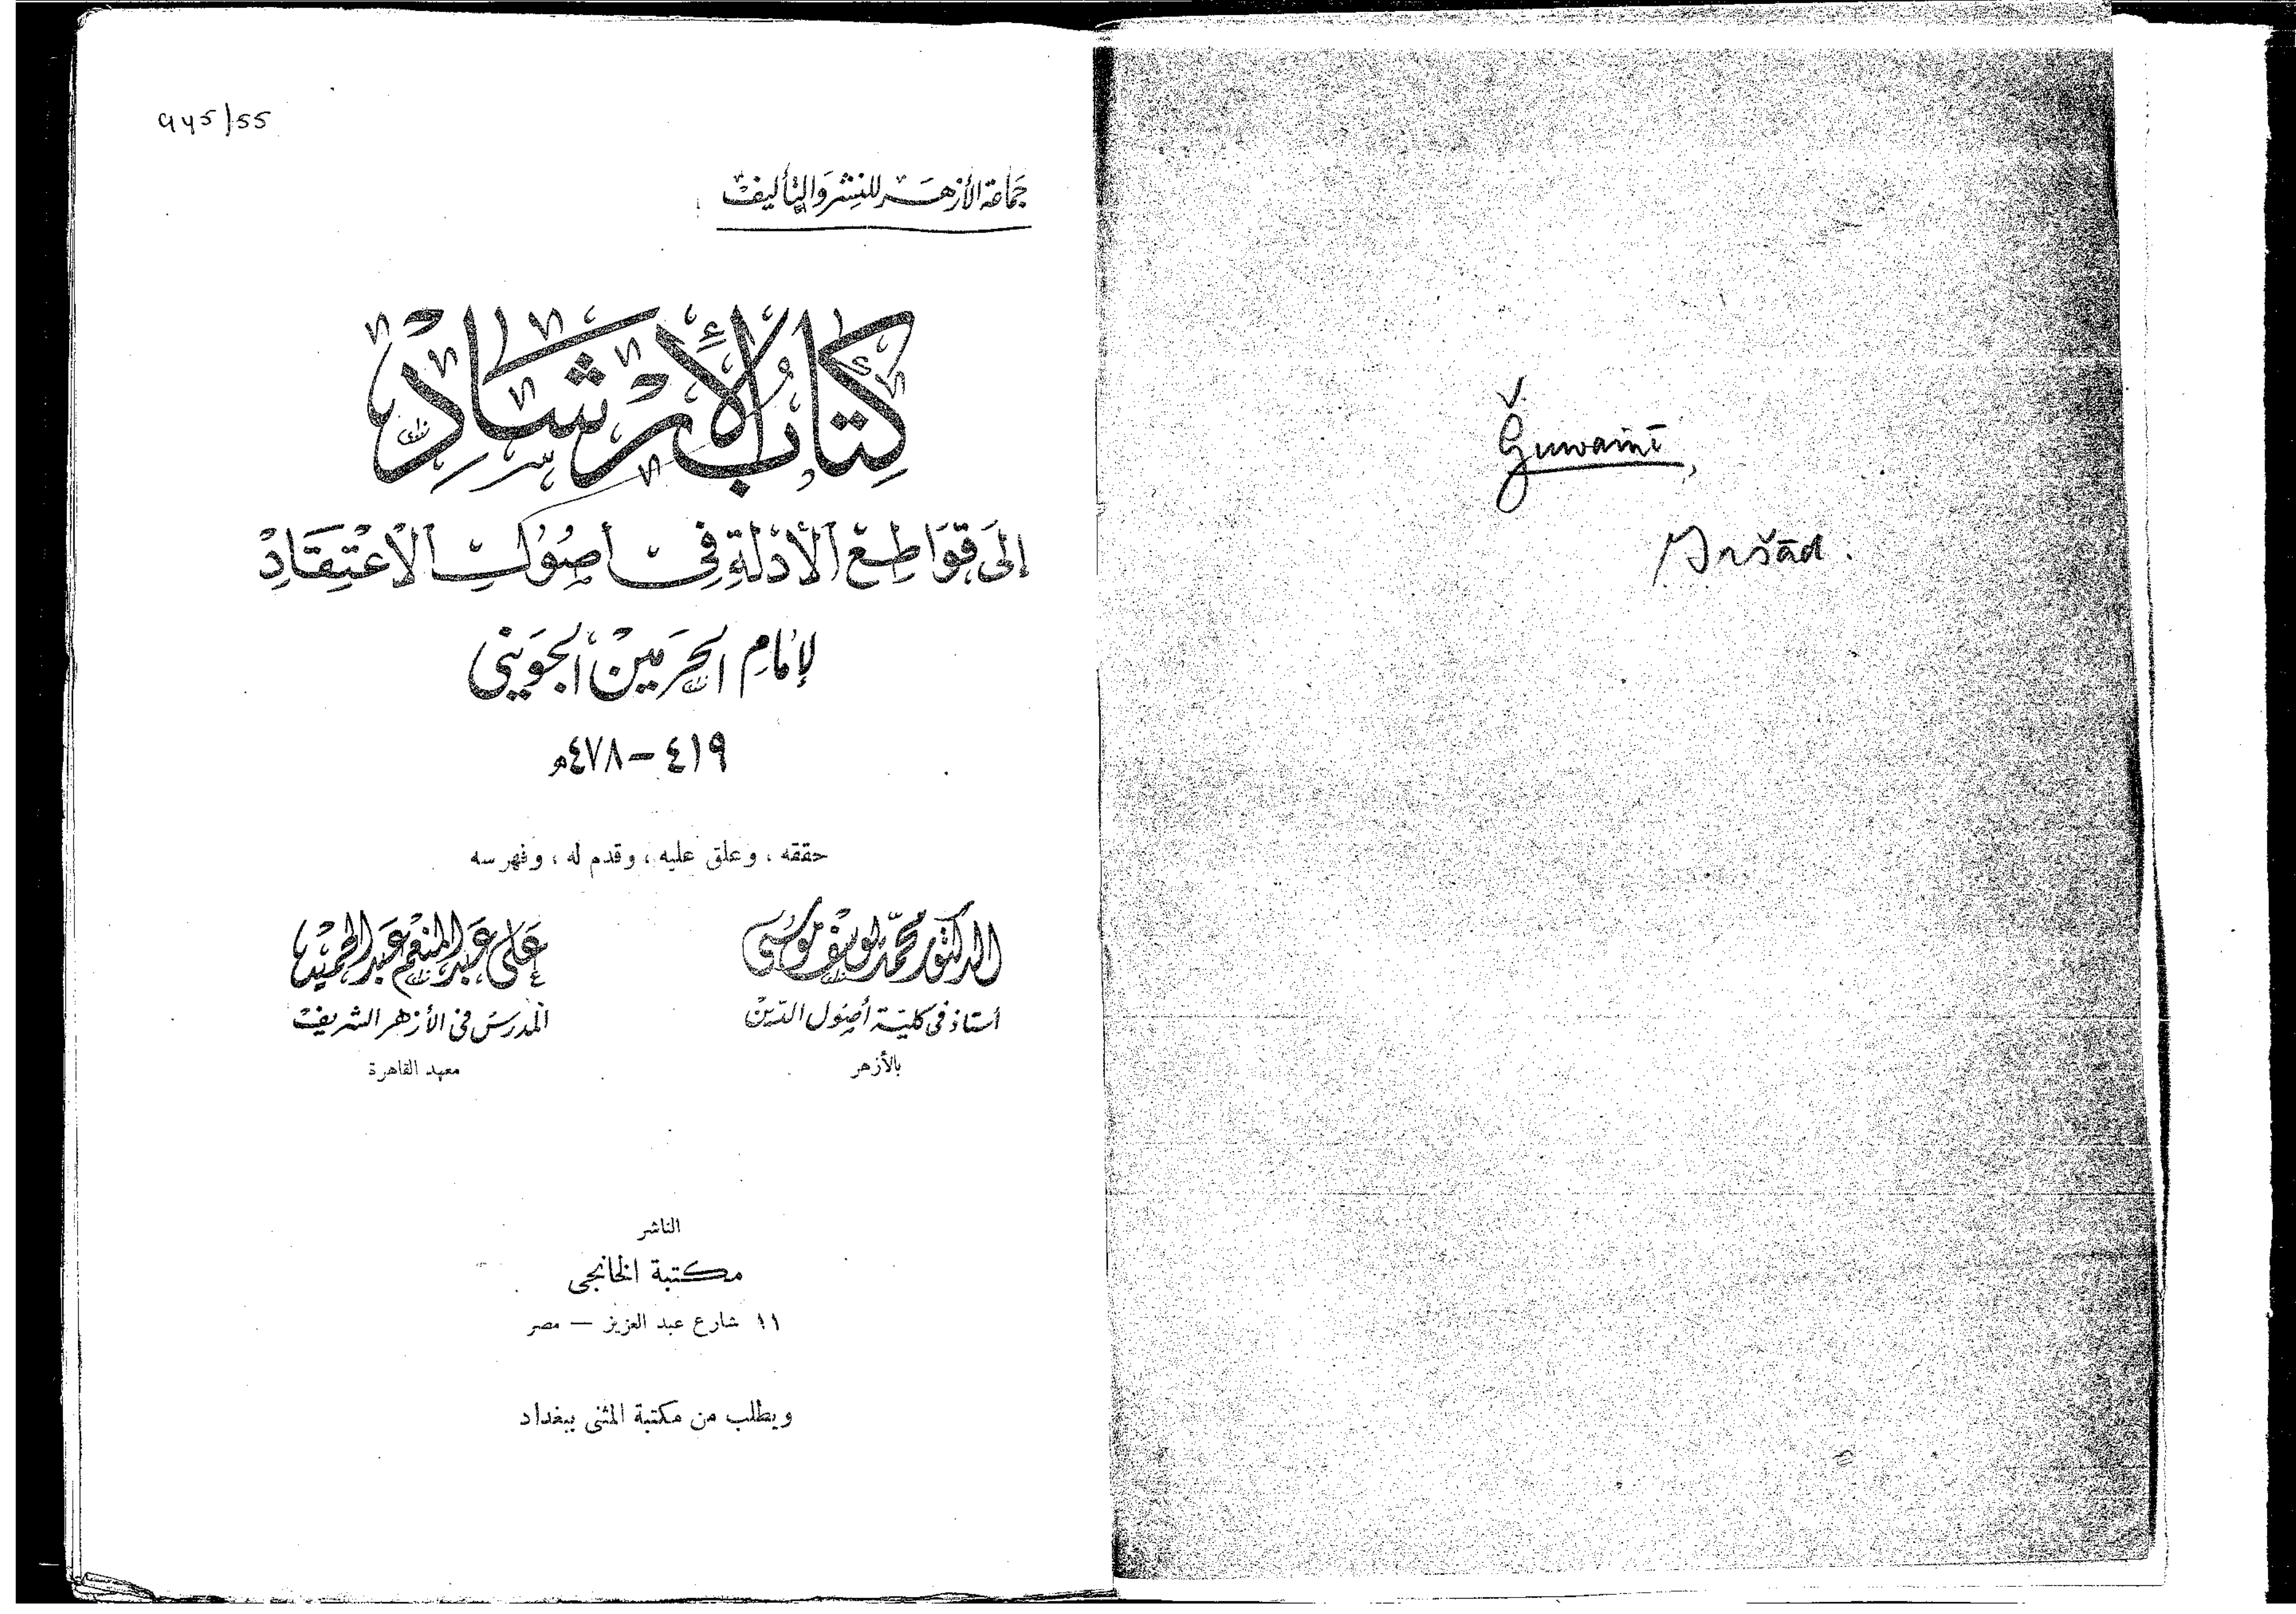 Ǧuwainī,
Iršād.
945/55
جماعة الأزهر للنشر والتأليف
كتاب الإرشاد
إلى قواطع الأدلة في أصول الاعتقاد
لإمام الحرمين الجويني
٤١٩ – ٤٧٨ھ
حققه ، وعلق عليه ، وقدم له ، وفهرسه
الدكتور محمد يوسف موسى
أستاذ فى كلية أصول الدين
بالأزهر
على عبد المنعم عبد الحميد
المدرس فى الأزهر الشريف
معهد القاهرة
الناشر
مكتبة الخانجى
١١ شارع عبد العزيز — مصر
ويطلب من مكتبة المثنى ببغداد